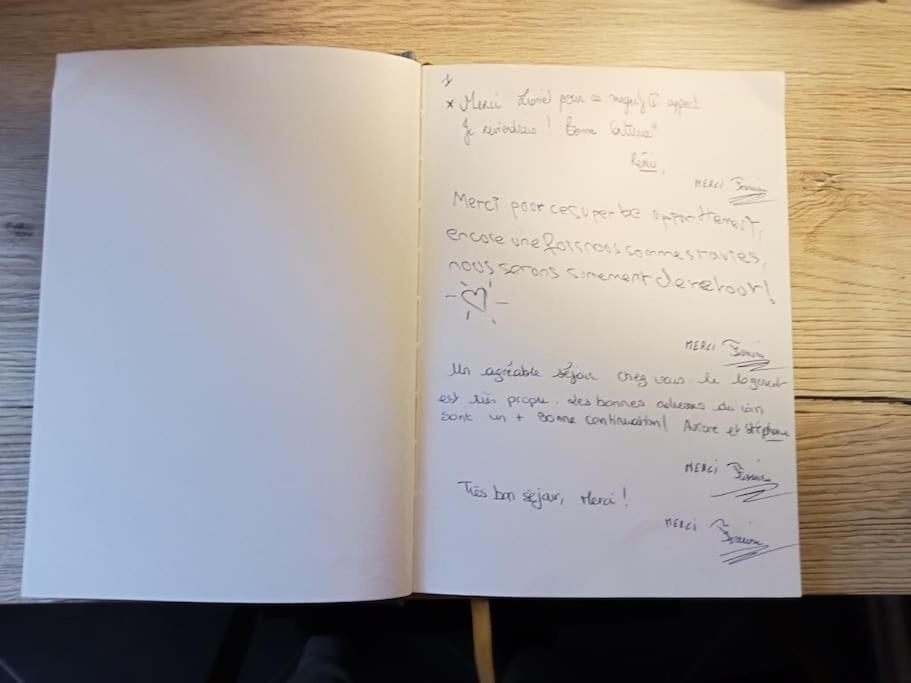 1
× Merci Lionel pour ce magnif appart
Je reviendrais! Bonne
Rémi,
MERCI
Merci pour ce superbe appartement,
encore une fois nous sommes ravies,
nous serons surement de retour!
MERCI
Un agréable séjour chez vous. Le logement
est très propre. Les bonnes adresses du coin
sont un + Bonne continuation! Aurore et Stéphane
MERCI
Très bon séjour, Merci!
MERCI